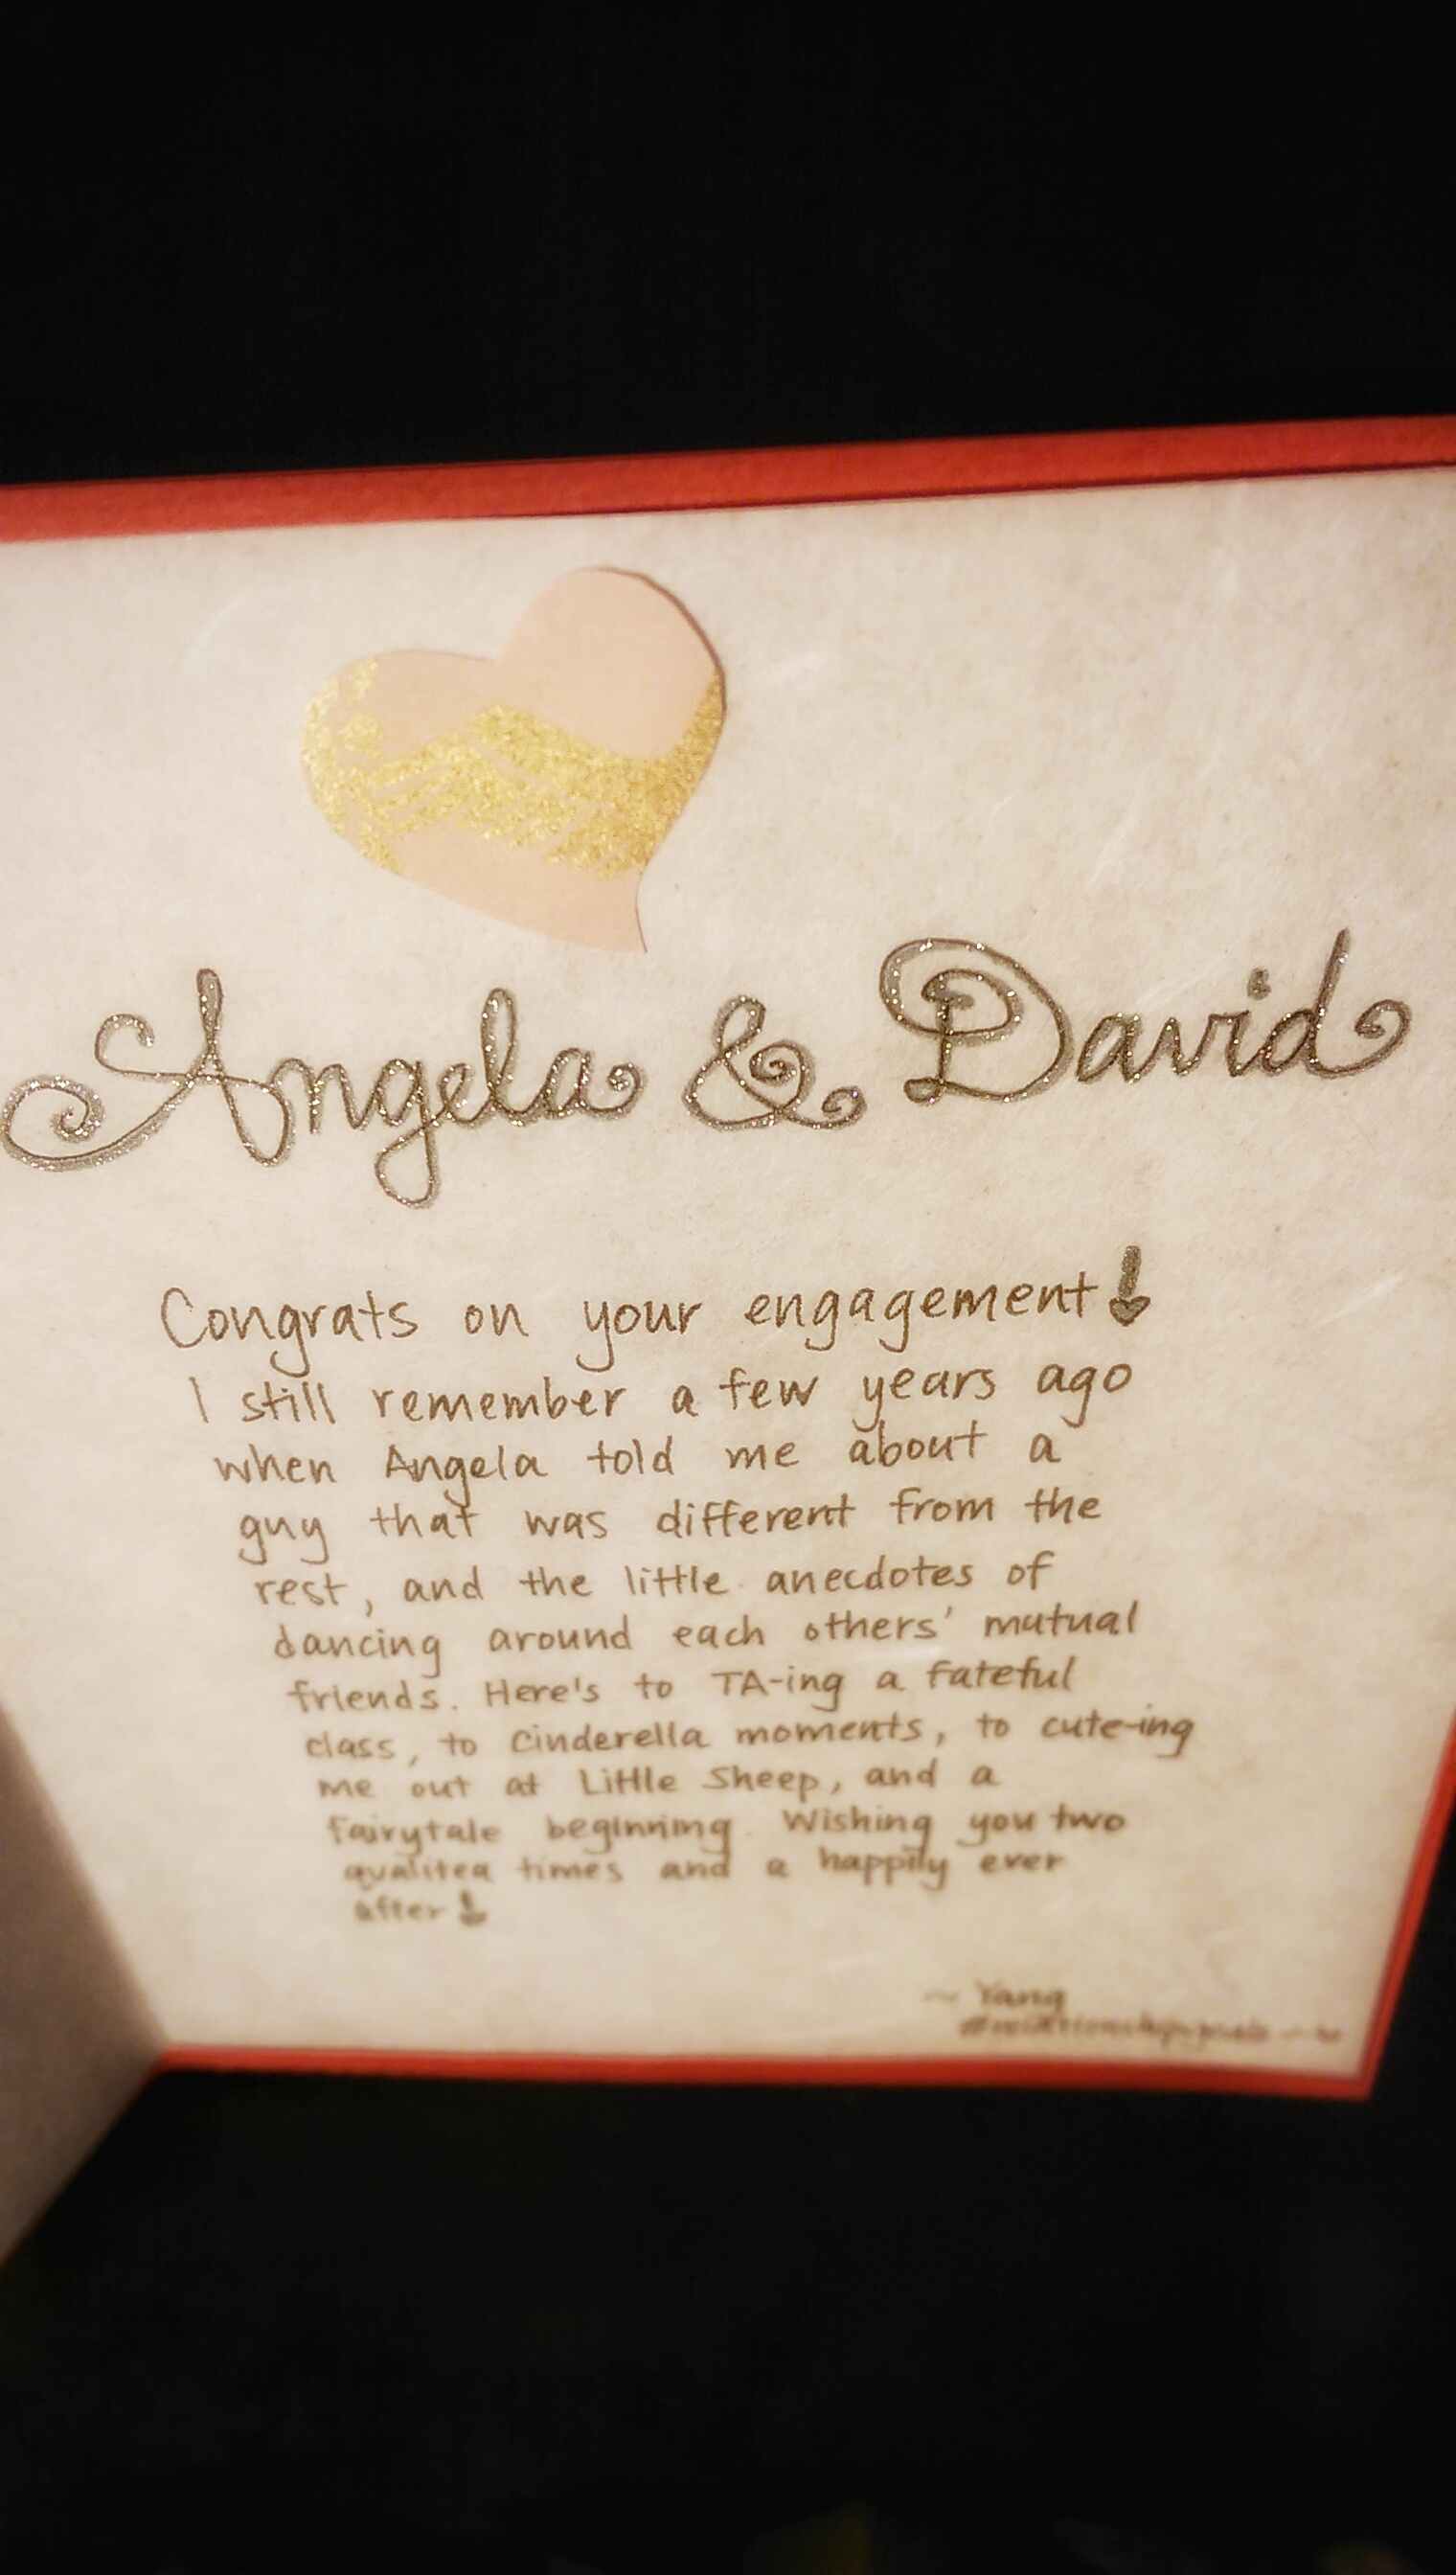 Angela & David
Congrats on your engagement!
I still remember a few years ago
when Angela told me about a
guy that was different from the
rest, and the little anecdotes of
dancing around each others' mutual
friends. Here's to TA-ing a fateful
class, to Cinderella moments, to cute-ing
me out at Little Sheep, and a
fairytale beginning. Wishing you two
qualitea times and a happily ever
after!
~ Yang
#relationshipgoals